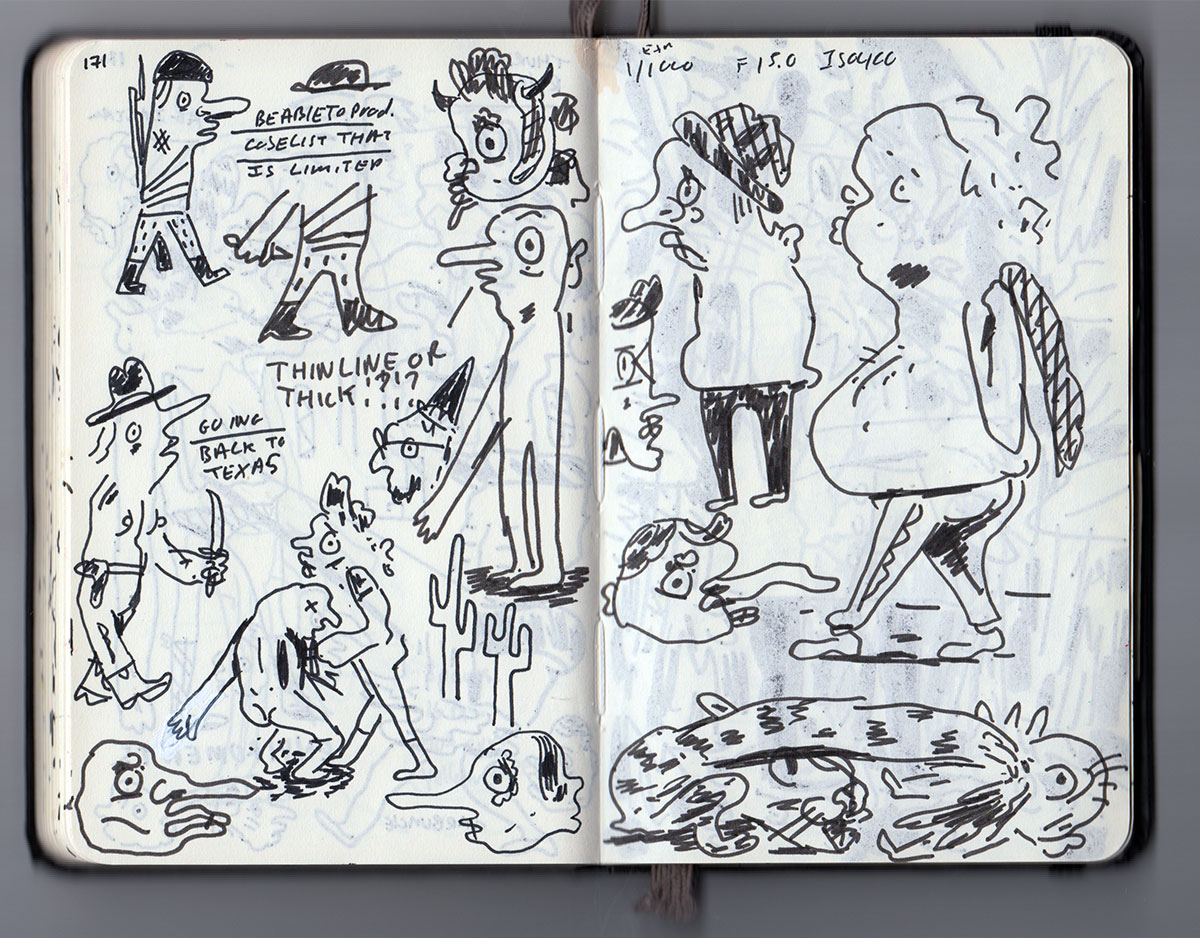 171
BE ABLE TO PROD.
COSELIST THAT
IS LIMITED
THIN LINE OR
THICK!?!?
GOING
BACK TO
TEXAS
1/1000 F 15.0 ISO400